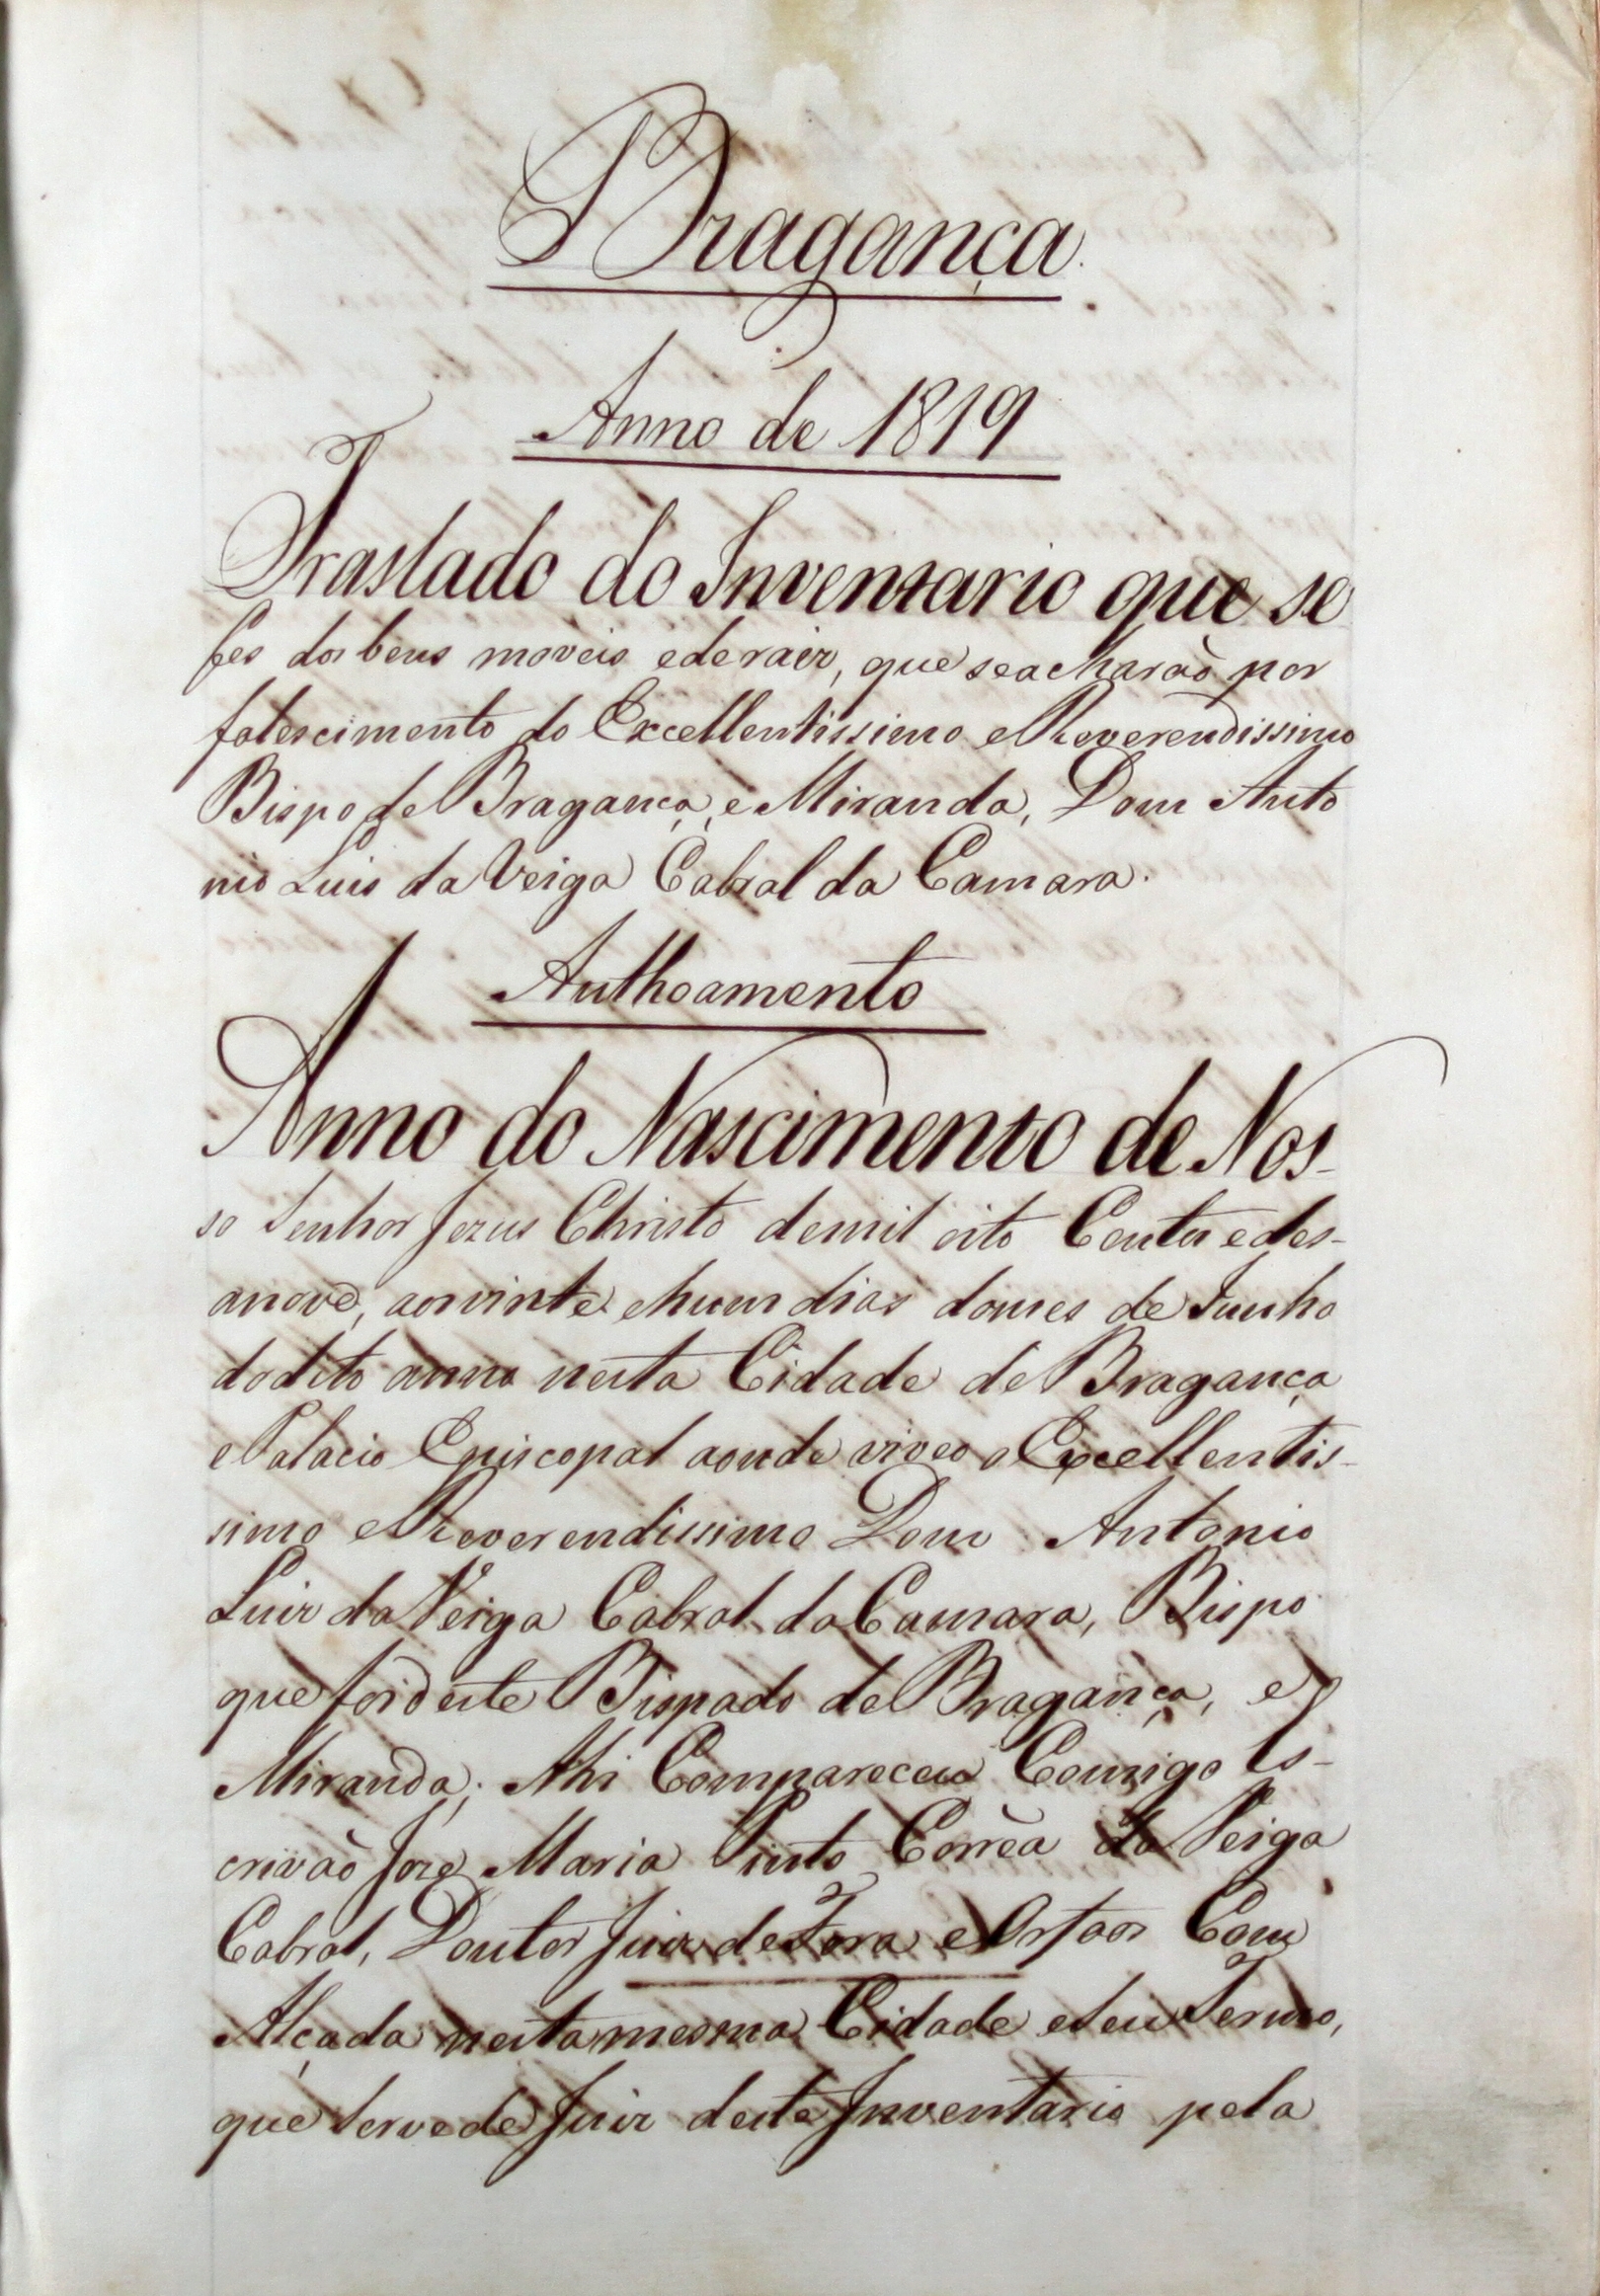 Bragança.
Anno de 1819
Traslado do Inventario que se
fes dos beus moveis ederaiz, que seacharaò por
falescimento do Excellentissimo eReverendissimo
Bispo de Bragança, e Miranda, Dom Anto
nio Luis da Veiga Cabral da Camara.
Authoamento
Anno do Nascimento de Nos-
so Senhor Jezus Christo demil oito Centos edes-
anove, aosvinte ehum dias domes de Junho
dodito anno nesta Cidade de Bragança
ePalacio Episcopal aonde viveo o Excellentis-
simo eReverendissimo Dom Antonio
Luiz da Veiga Cabral da Camara, Bispo
que foi deste Bispado de Bragança, e
Miranda; Ahi Compareceu Comigo Es-
crivaò Joze Maria Pinto Corrêa da Veiga
Cabral, Doutor Juiz de Fora eOrfaos Com
Alçada nesta mesma Cidade eseu Termo,
que serve de Juiz deste Inventario pela